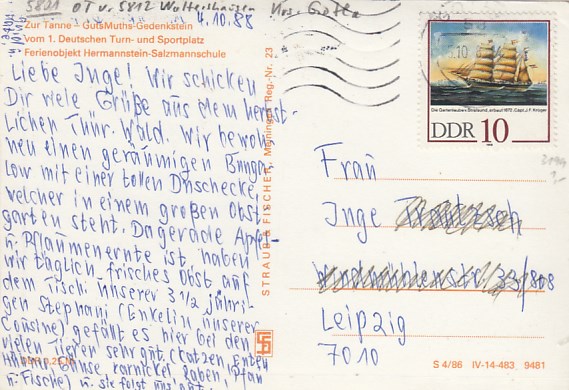 5821 OT v. 5812 Waltershausen Krs. Gotha
Zur Tanne – GutsMuths-Gedenkstein
vom 1. Deutschen Turn- und Sportplatz
Ferienobjekt Hermannstein-Salzmannschule
4.10.88
Liebe Inge! Wir schicken
Dir viele Grüße aus dem herbst-
lichen Thür. Wald. Wir bewoh-
nen einen geräumigen Bunga-
low mit einer tollen Duschecke,
welcher in einem großen Obst-
garten steht. Da gerade Apfel-
u. Pflaumenernte ist, haben
wir täglich frisches Obst auf
dem Tisch. Unserer 3 1/2 jähri-
gen Stephani (Enkelin unserer
Cousine) gefällt es hier bei den
vielen Tieren sehr gut. (Katzen, Enten
Hühner, Gänse, Karnickel
u. Fische) u. sie
STRAUB & FISCHER Meiningen Reg.-Nr. 23
DDR 10
Frau
Inge
Leipzig
7010
S 4/86 IV-14-483 9481